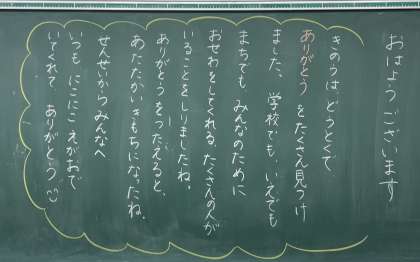 おはようございます
きのうは、どうとくで
ありがとう をたくさん見つけ
ました。学校でも、いえでも
まちでも、みんなのために
おせわをしてくれる、たくさんの人が
いることをしりましたね。
ありがとうをつたえると、
あたたかいきもちになったね。
せんせいからみんなへ
いつも にこにこ えがおで
いてくれて ありがとう